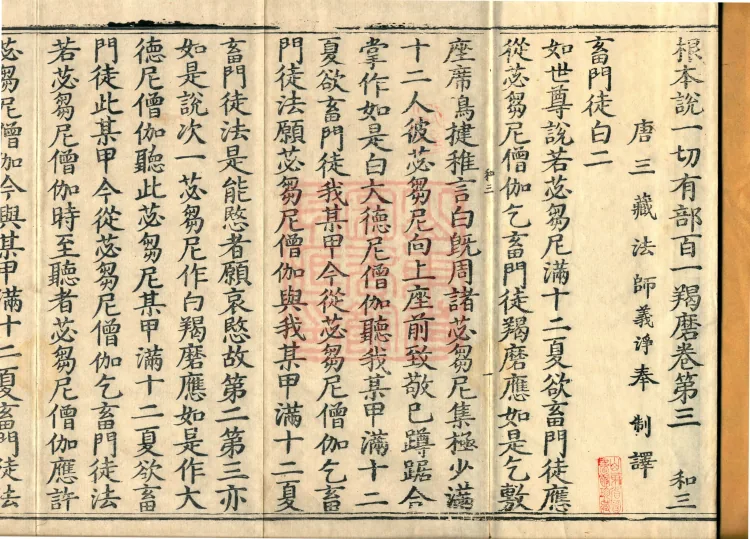 根本說一切有部百一羯磨卷第三 和三
唐三藏法師義淨奉 制譯
畜門徒白二
如世尊說若苾芻尼滿十二夏欲畜門徒應
從苾芻尼僧伽乞畜門徒羯磨應如是乞敷
和三
座席鳴揵稚言白旣周諸苾芻尼集極少滿
十二人彼苾芻尼向上座前致敬已蹲踞合
掌作如是白大德尼僧伽聽我某甲滿十二
夏欲畜門徒我某甲今從苾芻尼僧伽乞畜
門徒法願苾芻尼僧伽與我某甲滿十二夏
畜門徒法是能愍者願哀愍故第二第三亦
如是說次一苾芻尼作白羯磨應如是作大
德尼僧伽聽此苾芻尼某甲滿十二夏欲畜
門徒此某甲今從苾芻尼僧伽乞畜門徒法
若苾芻尼僧伽時至聽者苾芻尼僧伽應許
苾芻尼僧伽今與某甲滿十二夏畜門徒法